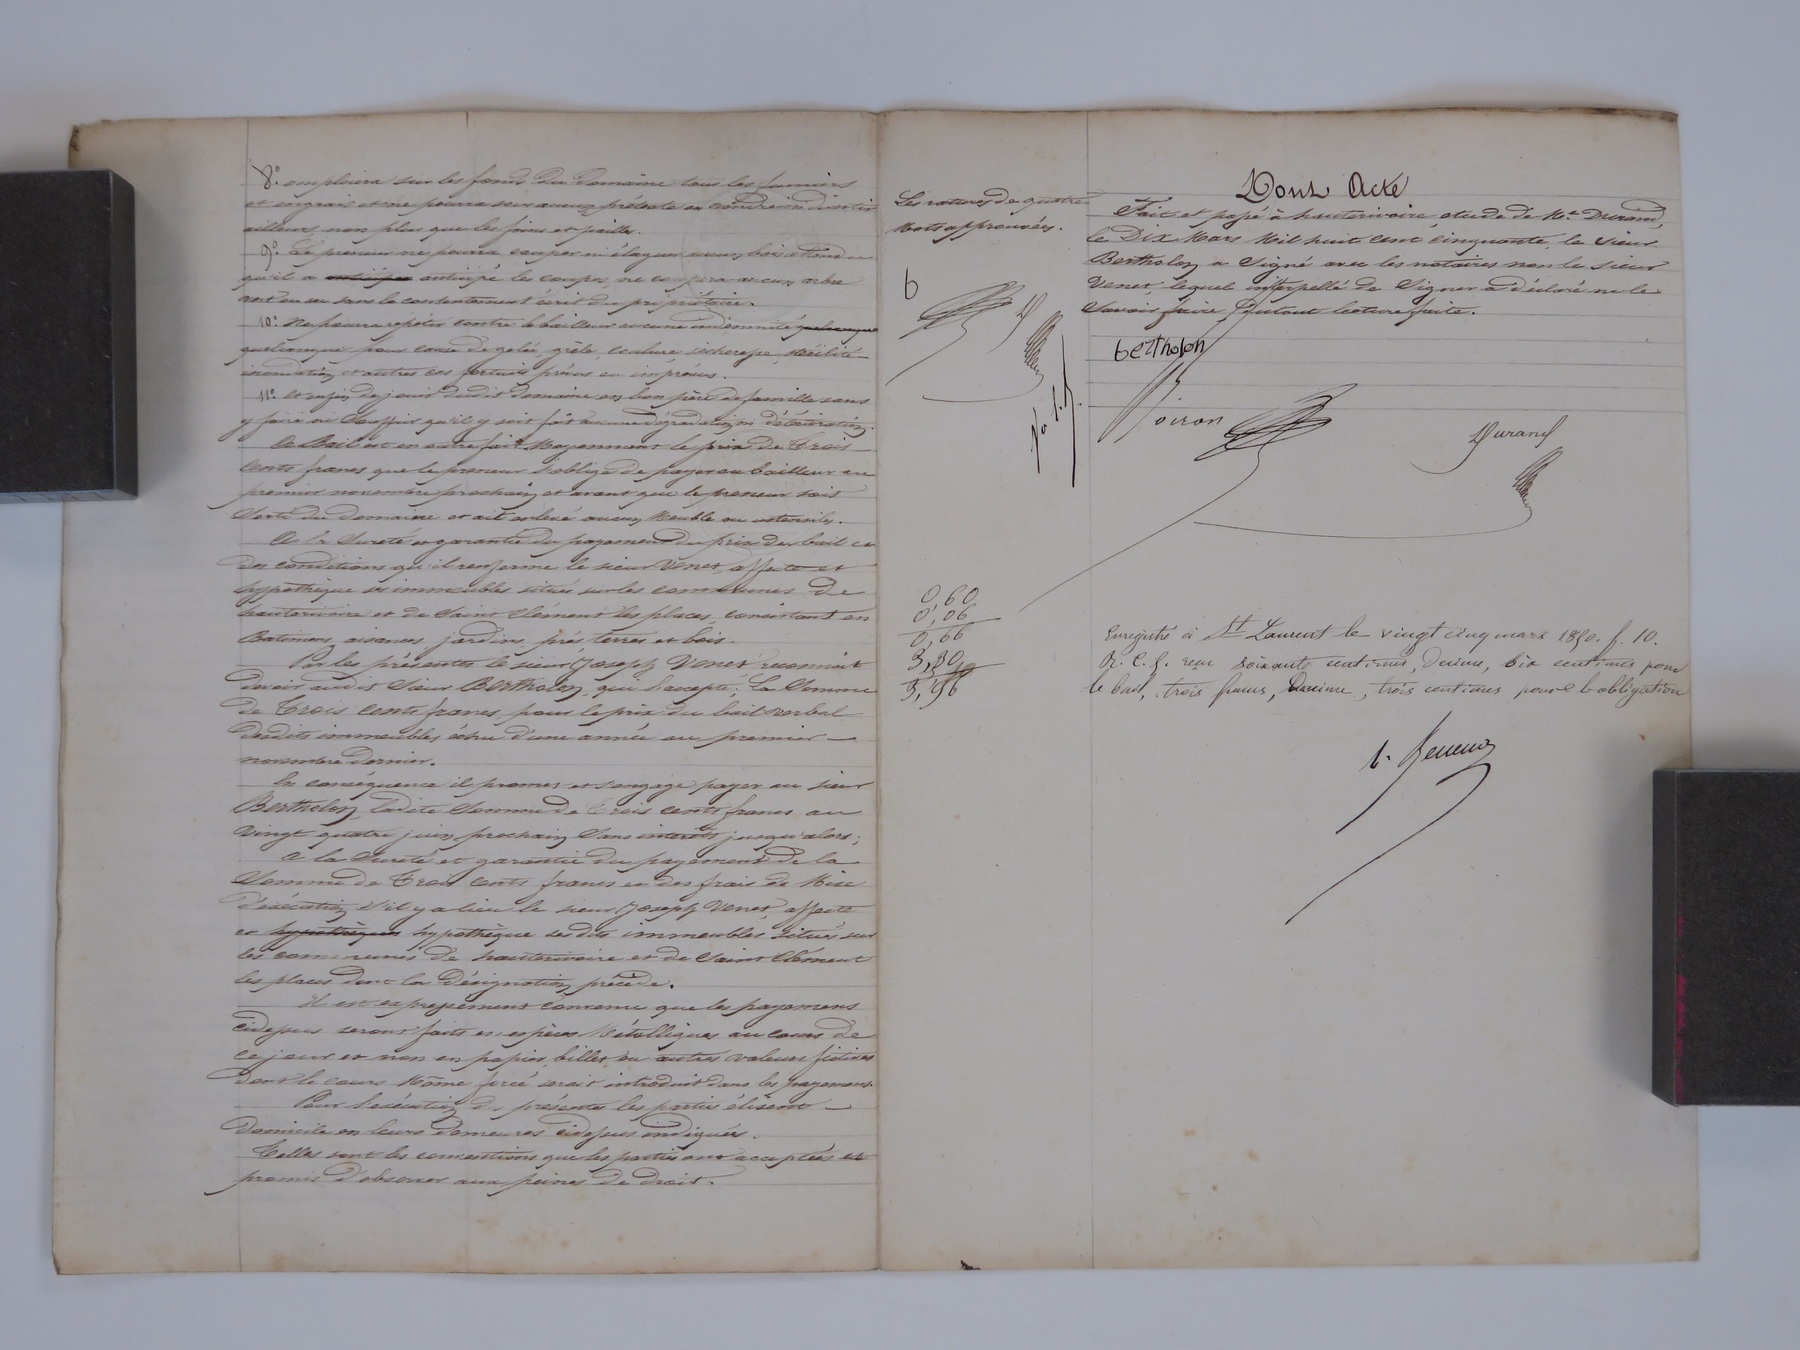 8.° emploiera sur les fonds du Domaine tous les fumiers
et engrais et ne pourra sous aucun prétexte en vendre ni divertir
ailleurs, non plus que les foins et paille.
9.° Le preneur ne pourra couper ni élaguer aucun bois attendu
qu'il a anticipé les coupes, ne coupera aucun arbre
vert ou sec sans le consentement écrit du propriétaire.
10.° Ne pourra répéter contre le bailleur aucune indemnité quelconque
quelconque pour cause de gelée, grêle, coulure, sécheresse, stérilité
inondation, et autres cas fortuits prévus ou imprévus.
11.° Et enfin de jouir dudit domaine en bon père de famille sans
y faire ni souffrir qu'il y soit fait aucune dégradation ni détérioration.
Ce Bail est en outre fait Moyennant le prix de Trois
Cents francs que le preneur s'oblige de payer au bailleur au
premier novembre prochain et avant que le preneur soit
Sorti du Domaine et ait enlevé aucun Meuble ou ustensiles.
A la Sureté et garantie du payement du prix du bail et
des conditions qu'il renferme le sieur Venet affecte et
hypothèque ses immeubles situés sur les communes de
hauterivoire et de Saint Clément les places, consistant en
Batimens, aisances, jardins, prés terres et bois.
Par les présentes le sieur Joseph Venet reconnait
devoir audit Sieur Bertholon, qui l'accepte, La Somme
de Trois cents francs, pour le prix du bail verbal
desdits immeubles échu d'une année au premier
novembre dernier.
En conséquence il promet et s'engage payer au sieur
Bertholon, ladite Somme de Trois cents francs au
Vingt quatre juin prochain Sans intérêts jusqu'alors;
A la Sureté et garantie du payement de la
Somme de Trois cents francs et des frais de Mise
d'exécution s'il y a lieu le sieur Joseph Venet affecte
et hypothèque ses dits immeubles situés sur
les communes de hauterivoire et de Saint Clément
les places dont la Désignation précède.
Il est expressement Convenu que les payemens
cidessus seront faits en espèces Métalliques au cours de
ce jour et non en papier, billet ou autres valeurs fictives
dont le cours Même forcé serait introduit dans les payemens.
Pour l'exécution des présentes les parties élisent
Domicile en leurs demeures cidessus indiquées.
Telles sont les conventions que les parties ont acceptées et
promis d'observer aux peines de droit.
Les ratures de quatre
Mots approuvées.
b
0,60
0,06
0,66
3,30
3,96
Dont Acte
Fait et passé à hauterivoire étude de Me. Durand,
le Dix Mars Mil huit cent cinquante, le Sieur
Bertholon a Signé avec les notaires non le Sieur
Venet, lequel interpellé de Signer a déclaré ne le
Savoir faire, Surtout lecture faite.
bertholon
Voiron
Durand
Enregistré à St Laurent le vingt cinq mars 1850. f. 10.
R. C. 8. reçu soixante centimes, decime, six centimes pour
le bail, trois francs, Decime, trois centimes pour l'obligation